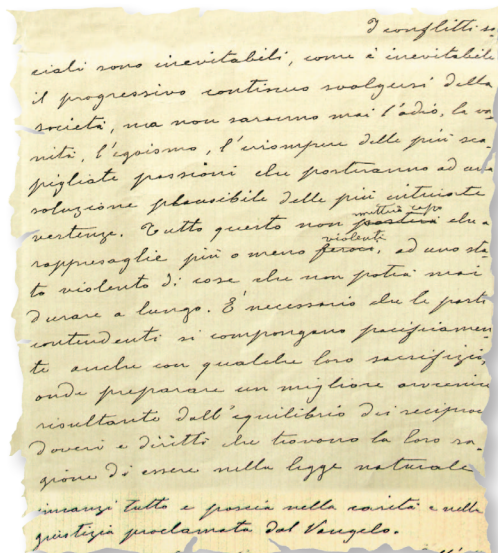 I conflitti so-
ciali sono inevitabili, come è inevitabile
il progressivo continuo svolgersi della
società, ma non saranno mai l'odio, la va-
nità, l'egoismo, l'irrompere delle più sca-
pigliate passioni che porteranno ad una
soluzione plausibile delle più intricate
metterà capo
vertenze. Tutto questo non porterà che a
violenti
rappresaglie più o meno feroci, ad uno sta-
to violento di cose che non potrà mai
durare a lungo. È necessario che le parti
contendenti si compongano pacificamen-
te anche con qualche loro sacrifizio,
onde preparare un migliore avvenire
risultante dall'equilibrio dei reciproci
doveri e diritti che trovano la loro ra-
gione di essere nella legge naturale
innanzi tutto e poscia nella carità e nella
giustizia proclamata dal Vangelo.